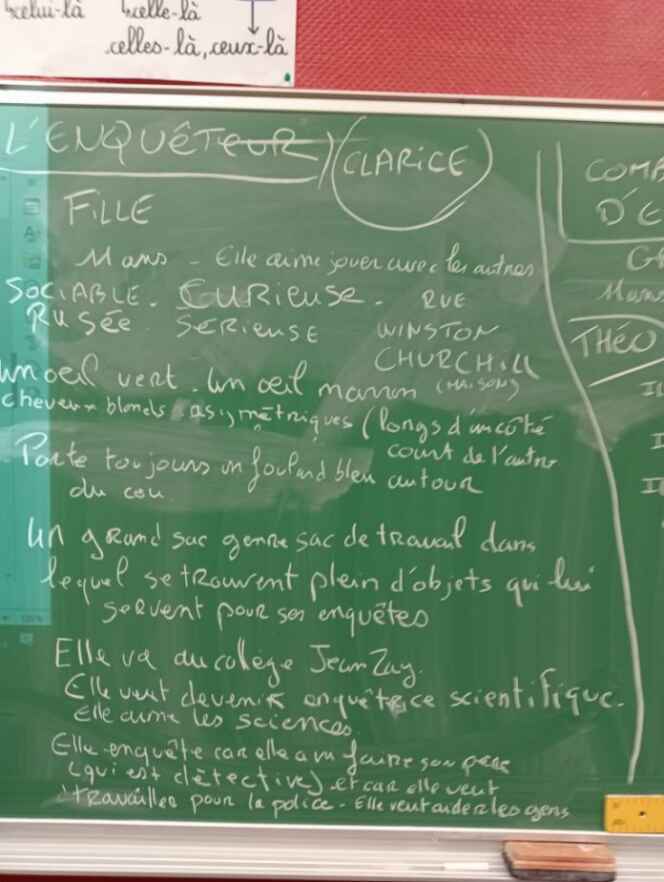 celui-là celle-là
celles-là, ceux-là
L'ENQUÊTEUR / CLARICE
FILLE
11 ans - Elle aime jouer avec les autres
SOCIABLE. CURIEUSE. RUE
RUSÉE. SERIEUSE WINSTON
CHURCHILL
(MAISON)
un oeil vert. Un oeil marron
cheveux blonds asymétriques (longs d'un côté
court de l'autre
Porte toujours un foulard bleu autour
du cou.
Un grand sac genre sac de travail dans
lequel se trouvent plein d'objets qui lui
servent pour ses enquêtes
Elle va au collège Jean Zay.
Elle veut devenir enquêtrice scientifique.
Elle aime les sciences
Elle enquête car elle a vu faire son père
(qui est détective) et car elle veut
travailler pour la police. Elle veut aider les gens
COMP
D'E
THÉO